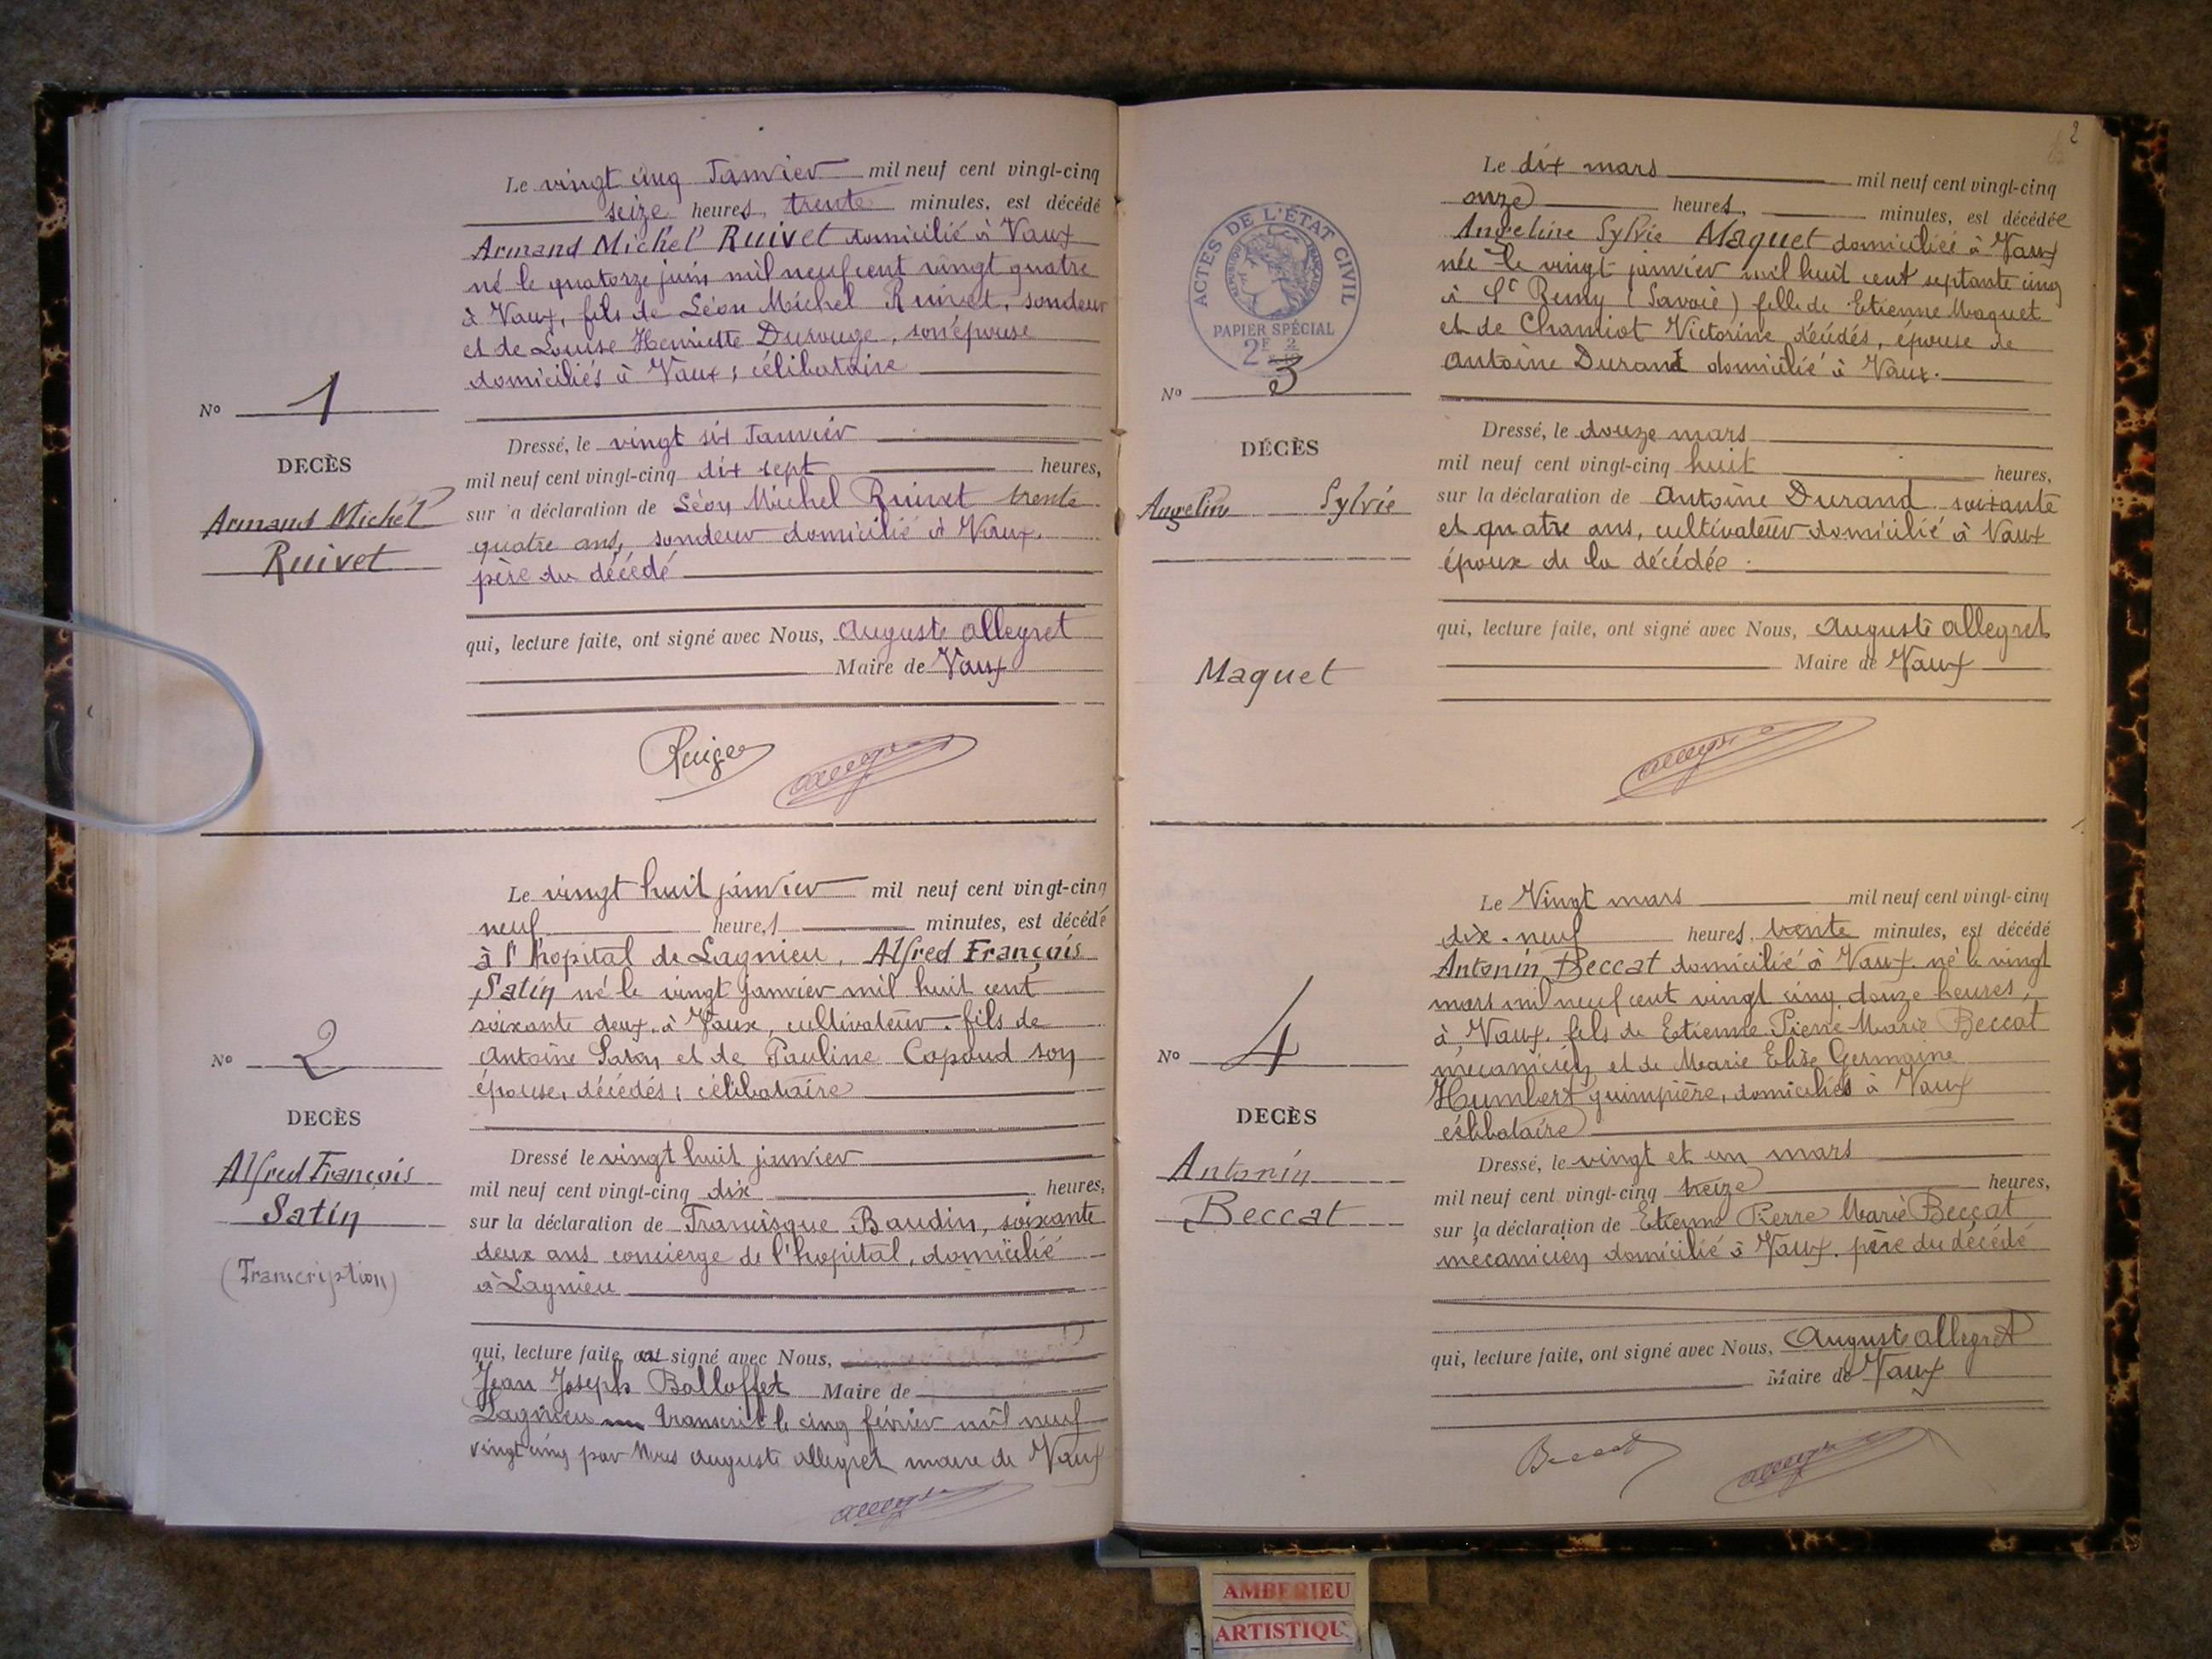 Le vingt cinq Janvier mil neuf cent vingt-cinq
seize heures, trente minutes, est décédé
Armand Michel Ruivet domicilié à Vaux
né le quatorze juin mil neuf cent vingt quatre
à Vaux, fils de Léon Michel Ruivet, sondeur
et de Louise Henriette Durouge, son épouse
domiciliés à Vaux; célibataire
No 1
DECÈS
Armand Michel
Ruivet
Dressé, le vingt six Janvier
mil neuf cent vingt-cinq dix sept heures,
sur a déclaration de Léon Michel Ruivet trente
quatre ans, sondeur domicilié à Vaux.
père du décédé
qui, lecture faite, ont signé avec Nous, Auguste Allegret
Maire de Vaux
Le vingt huit janvier mil neuf cent vingt-cinq
neuf heures minutes, est décédé
à l'hopital de Lagnieu, Alfred François
Satin né le vingt janvier mil huit cent
soixante deux, à Vaux, cultivateur. fils de
Antoine Satin et de Pauline Capoud son
épouse, décédés; célibataire
No 2
DECÈS
Alfred François
Satin
(Transcription)
Dressé le vingt huit janvier
mil neuf cent vingt-cinq dix heures,
sur la déclaration de Francisque Baudin, soixante
deux ans concierge de l'hopital, domicilié
à Lagnieu
qui, lecture faite, ont signé avec Nous,
Jean Joseph Balloffet Maire de
Lagnieu transcrit le cinq février mil neuf
vingt cinq par Nous Auguste Allegret maire de Vaux
2
Le dix mars mil neuf cent vingt-cinq
onze heures, minutes, est décédée
Angeline Sylvie Maquet domiciliée à Vaux
née le vingt janvier mil huit cent septante cinq
à St Remy (Savoie) fille de Etienne Maquet
et de Chamiot Victorine décédés, épouse de
Antoine Durand domicilié à Vaux.
ACTES DE L'ÉTAT CIVIL
PAPIER SPÉCIAL
No 3
DÉCÈS
Angeline Sylvie
Maquet
Dressé, le douze mars
mil neuf cent vingt-cinq huit heures,
sur la déclaration de Antoine Durand soixante
et quatre ans, cultivateur domicilié à Vaux
époux de la décédée.
qui, lecture faite, ont signé avec Nous, Auguste Allegret
Maire de Vaux
Le Vingt mars mil neuf cent vingt-cinq
dix-neuf heures, trente minutes, est décédé
Antonin Beccat domicilié à Vaux. né le vingt
mars mil neuf cent vingt cinq douze heures,
à Vaux. fils de Etienne Pierre Marie Beccat
mécanicien et de Marie Elise Germaine
Humbert guimpière, domiciliés à Vaux
célibataire
No 4
DECÈS
Antonin
Beccat
Dressé, le vingt et un mars
mil neuf cent vingt-cinq treize heures,
sur la déclaration de Etienne Pierre Marie Beccat
mécanicien domicilié à Vaux. père du décédé
qui, lecture faite, ont signé avec Nous, Auguste Allegret
Maire de Vaux
Beccat
AMBERIEU
ARTISTIQU